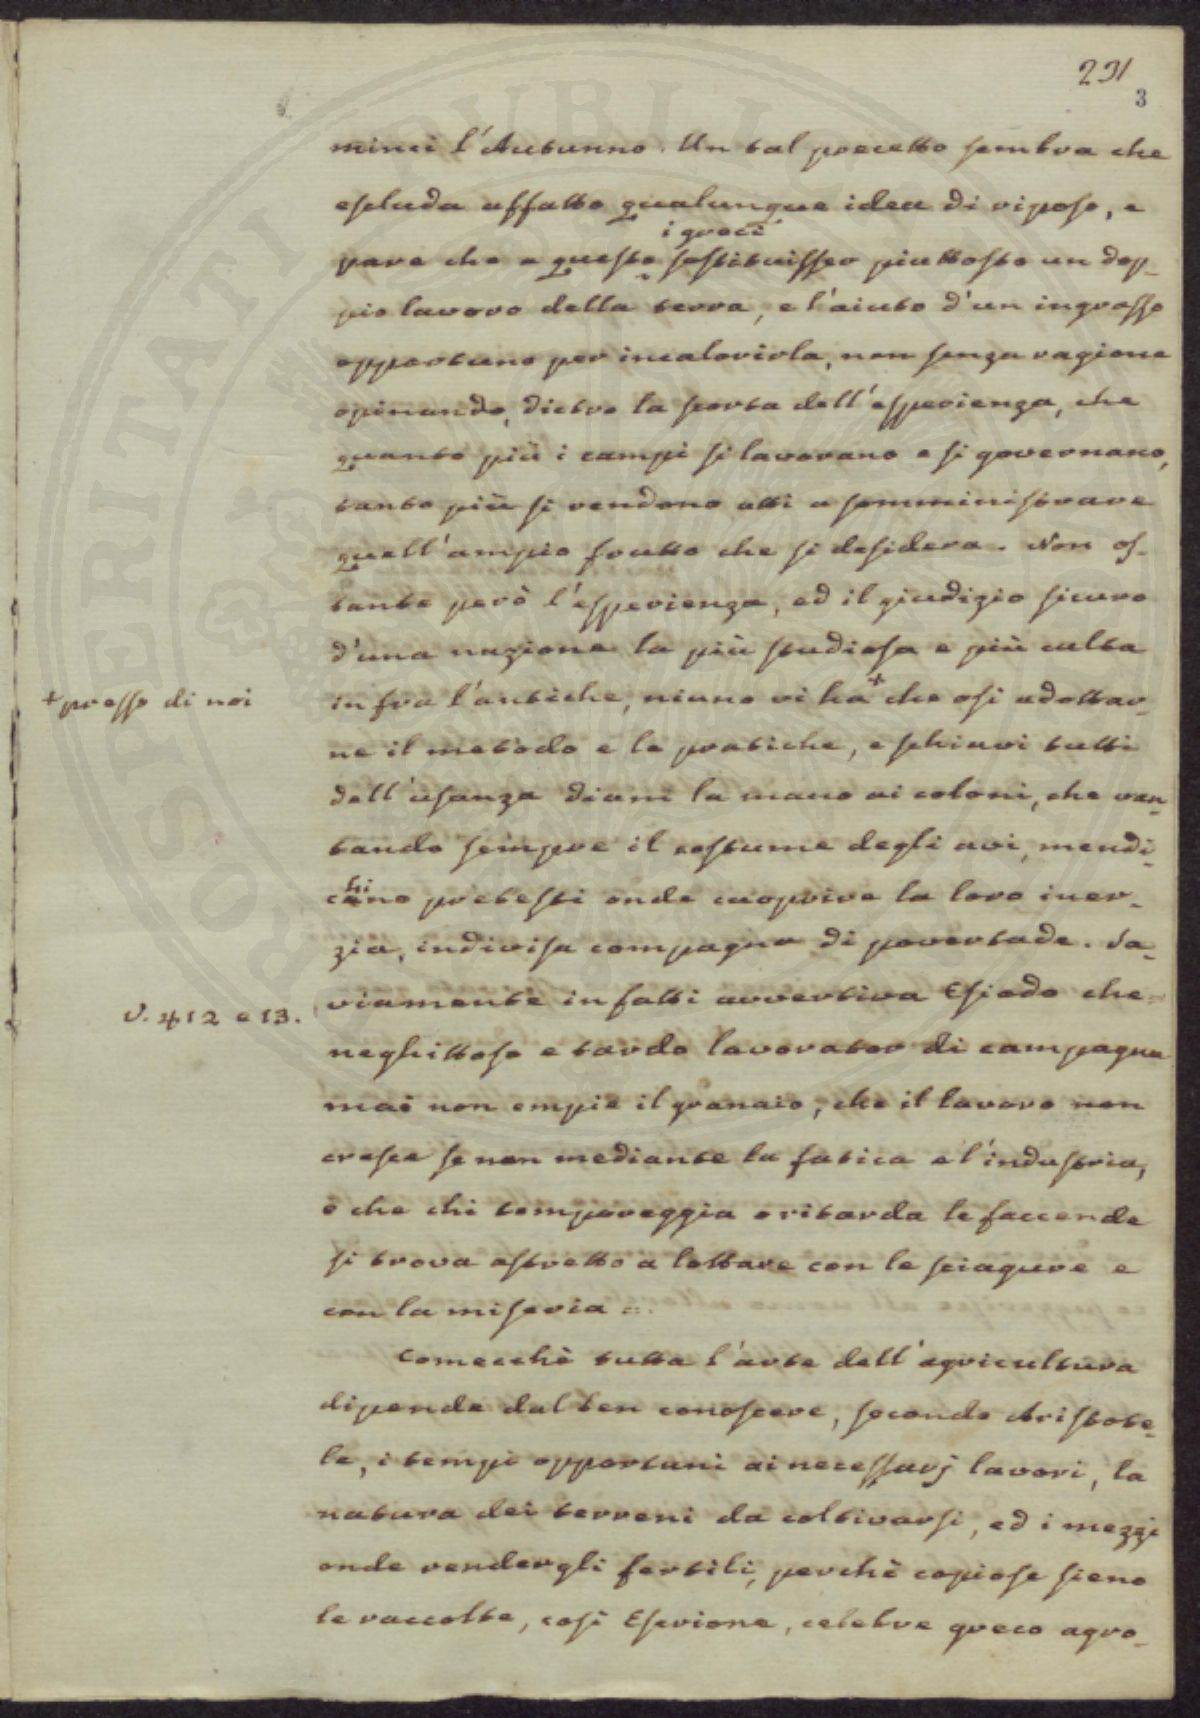 291
3
minci l'Autunno. Un tal precetto sembra che
escluda affatto qualunque idea di riposo, e
i greci
pare che a questo sostituisser piuttosto un dop-
pio lavoro della terra, e l'aiuto d'un ingrasso
opportuno per incalorirla, non senza ragione
opinando, dietro la scorta dell'esperienza, che
quanto più i campi si lavorano e si governano,
tanto più si rendono atti a somministrare
quell'ampio frutto che si desidera. Non os-
tante però l'esperienza, ed il giudizio sicuro
d'una nazione la più studiosa e più culta
+ presso di noi
infra l'antiche, niuno vi ha + che osi adottar-
ne il metodo e le pratiche, e schiavi tutti
dell'usanza diam la mano ai coloni, che van-
tando sempre il costume degli avi, mendi-
chino pretesti onde cuoprire la loro iner-
zia, indivisa compagna di povertade. Sa-
viamente infatti avvertiva Esiodo che=
V. 412 e 13.
neghittoso e tardo lavorator di campagna
mai non empie il granaio, che il lavoro non
cresce se non mediante la fatica e l'industria,
e che chi temporeggia e ritarda le faccende
si trova astretto a lottare con le sciagure e
con la miseria =.
Comecchè tutta l'arte dell'agricultura
dipenda dal ben conoscere, secondo Aristote-
le, i tempi opportuni ai necessarj lavori, la
natura dei terreni da coltivarsi, ed i mezzi
onde rendergli fertili, perchè copiose sieno
le raccolte, così Escrione, celebre greco agro-
PROSPERITATI PUBLICAE